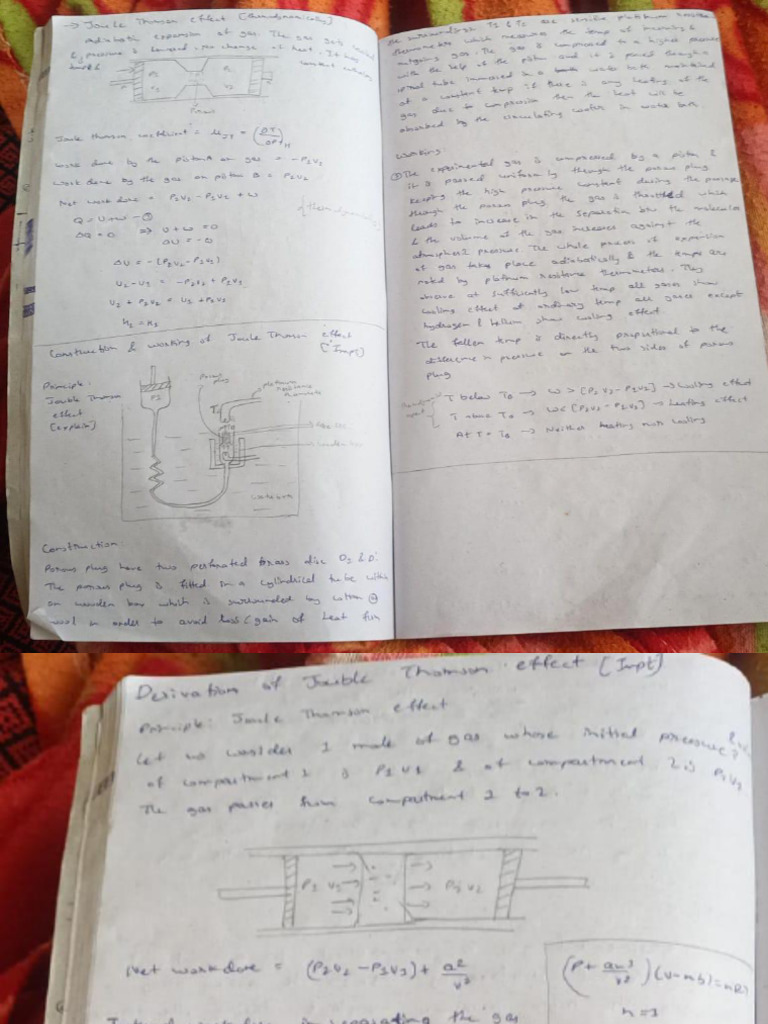 → Joule Thomson Effect (thermodynamically)
Adiabatic expansion of gas. The gas gets cooled
& pressure is lowered. no change of heat. It has
constant enthalpy
P1 P2
V1 V2
Porous
Joule Thomson coefficient = μJT = (∂T/∂P)H
Work done by the piston A on gas = -P1V1
Work done by the gas on piston B = P2V2
Net work done = P2V2 - P1V1 + w
Q = U+W - ①
ΔQ = 0 ⇒ U + W = 0
ΔU = -(P2V2 - P1V1)
U2 - U1 = -P2V2 + P1V1
U2 + P2V2 = U1 + P1V1
H2 = H1
Construction & working of Joule Thomson effect
(Impt)
Principle:
Joule Thomson
effect
(explain)
P1
Porous
plug
platinum
resistance
thermometer
Water bath
Construction:
Porous plug have two perforated brass disc D1 & D'
The porous plug is fitted in a cylindrical tube within
an wooden box which is surrounded by cotton
wool in order to avoid loss/gain of heat from
the surroundings. T1 & T2 are sensitive platinum resistance
thermometers which measures the temp of incoming &
outgoing gas. The gas is compressed to a higher pressure
with the help of the piston and it is passed through a
spiral tube immersed in a water bath maintained
at a constant temp. If there is any heating of the
gas due to compression then the heat will be
absorbed by the circulating water in water bath.
Working:
The experimental gas is compressed by a piston &
it is passed uniformly through the porous plug
keeping the high pressure constant during the passage
through the porous plug the gas is throttled which
leads to increase in the separation btw the molecules
& the volume of the gas increases against the
atmospheric pressure. The whole process of expansion
of gas takes place adiabatically & the temps are
noted by platinum resistance thermometers. They
observe at sufficiently low temp all gases show
cooling effect at ordinary temp all gases except
hydrogen & helium show cooling effect.
The fallen temp is directly proportional to the
difference in pressure on the two sides of porous
plug
T below T0 → w > [P2V2 - P1V1] → Cooling effect
T above T0 → w < [P2V2 - P1V1] → heating effect
At T = T0 → Neither heating nor cooling
Derivation of Jouble Thomson effect (Impt)
Principle: Joule Thomson effect
Let us consider 1 mole of gas whose initial pressure &
of compartment 1 is P1V1 & of compartment 2 is P2V2
The gas passes from compartment 1 to 2.
P1 V1 P2 V2
Net work done = (P2V2 - P1V1) + a²/v²
(P + an²/v²)(v-nb)=nRT
n=1
the gas